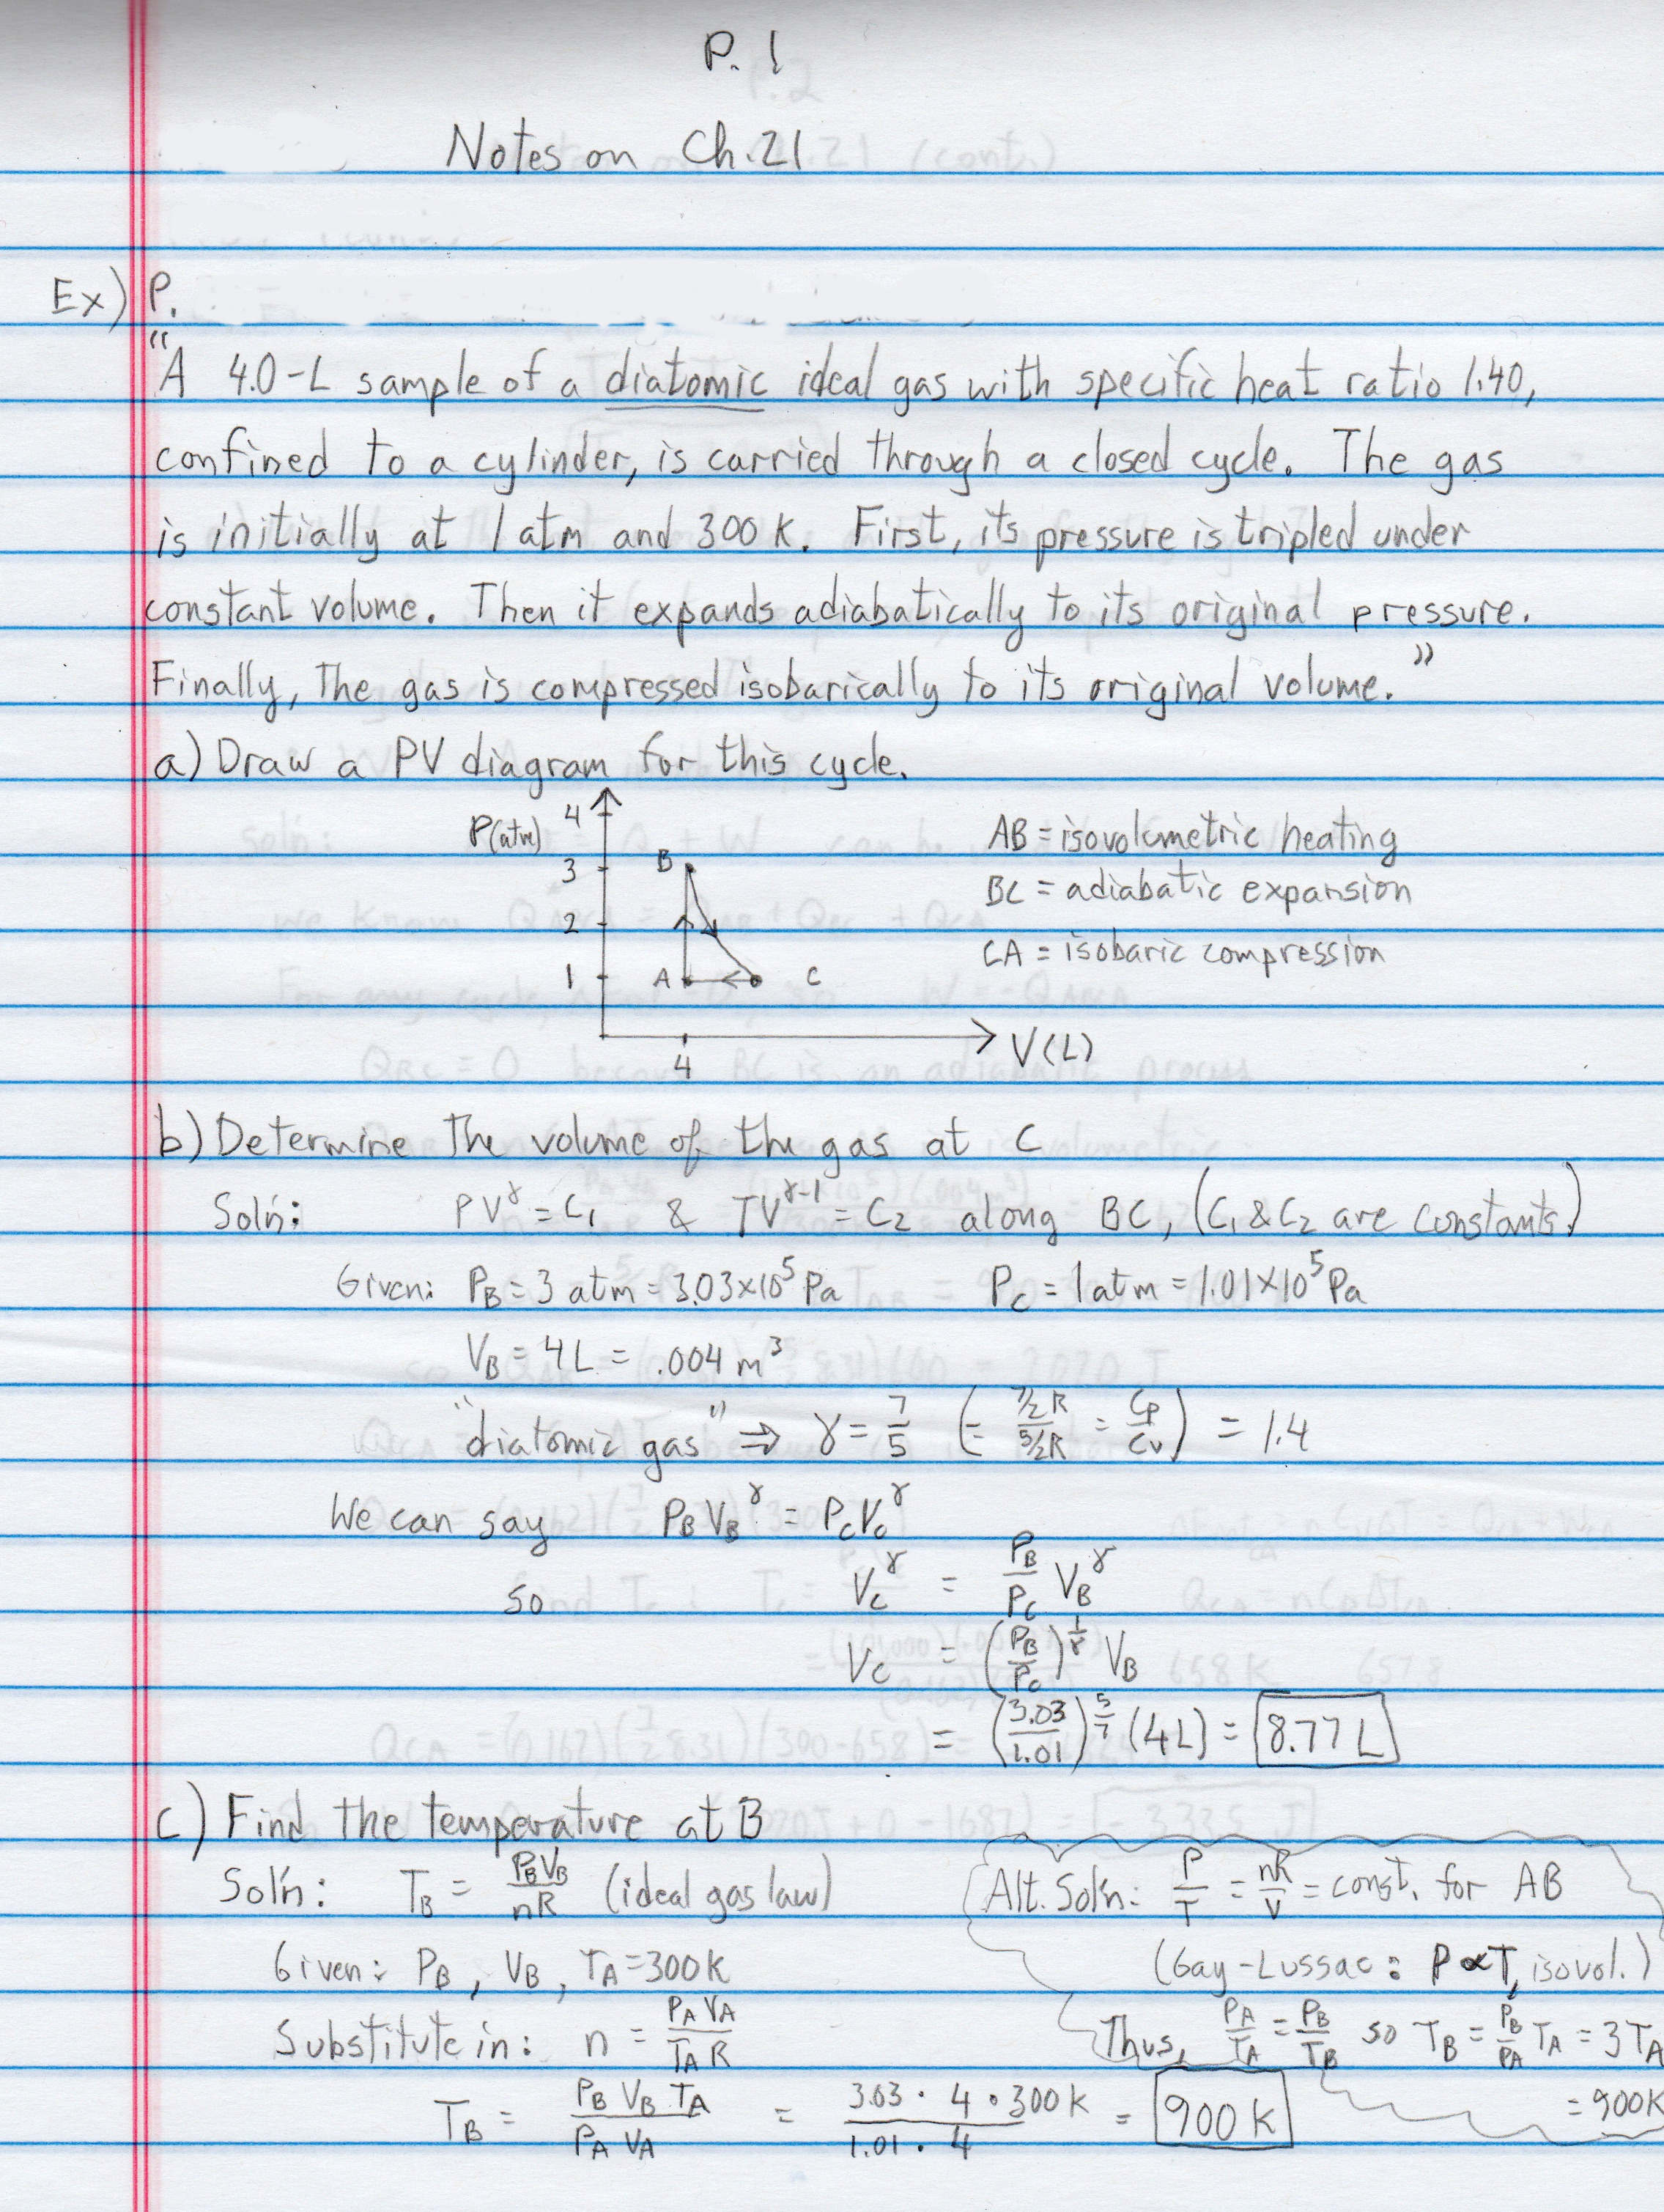 P. 1
Notes on Ch.21
Ex) P.
"A 4.0-L sample of a diatomic ideal gas with specific heat ratio 1.40,
confined to a cylinder, is carried through a closed cycle. The gas
is initially at 1 atm and 300 K. First, its pressure is tripled under
constant volume. Then it expands adiabatically to its original pressure.
Finally, the gas is compressed isobarically to its original volume."
a) Draw a PV diagram for this cycle.
P(atm) 4
3 B
2
1 A C
4 V(L)
AB = isovolumetric heating
BC = adiabatic expansion
CA = isobaric compression
b) Determine the volume of the gas at C
Sol'n: PV^γ = C₁ & TV^(γ-1) = C₂ along BC, (C₁ & C₂ are constants.)
Given: P_B = 3 atm = 3.03×10⁵ Pa P_C = 1 atm = 1.01×10⁵ Pa
V_B = 4L = .004 m³
"diatomic gas" ⇒ γ = 7/5 (= (7/2 R)/(5/2 R) = Cp/Cv) = 1.4
We can say P_B V_B^γ = P_C V_C^γ
so V_C^γ = P_B/P_C V_B^γ
V_C = (P_B/P_C)^(1/γ) V_B
= (3.03/1.01)^(5/7) (4L) = 8.77 L
c) Find the temperature at B
Sol'n: T_B = P_B V_B/nR (ideal gas law)
Given: P_B, V_B, T_A = 300K
Substitute in: n = P_A V_A/T_A R
T_B = P_B V_B T_A/P_A V_A = 3.03 · 4 · 300K/1.01 · 4 = 900 K
Alt. Sol'n: P/T = nR/V = const. for AB
(Gay-Lussac: P∝T, isovol.)
Thus, P_A/T_A = P_B/T_B so T_B = P_B/P_A T_A = 3 T_A
= 900K